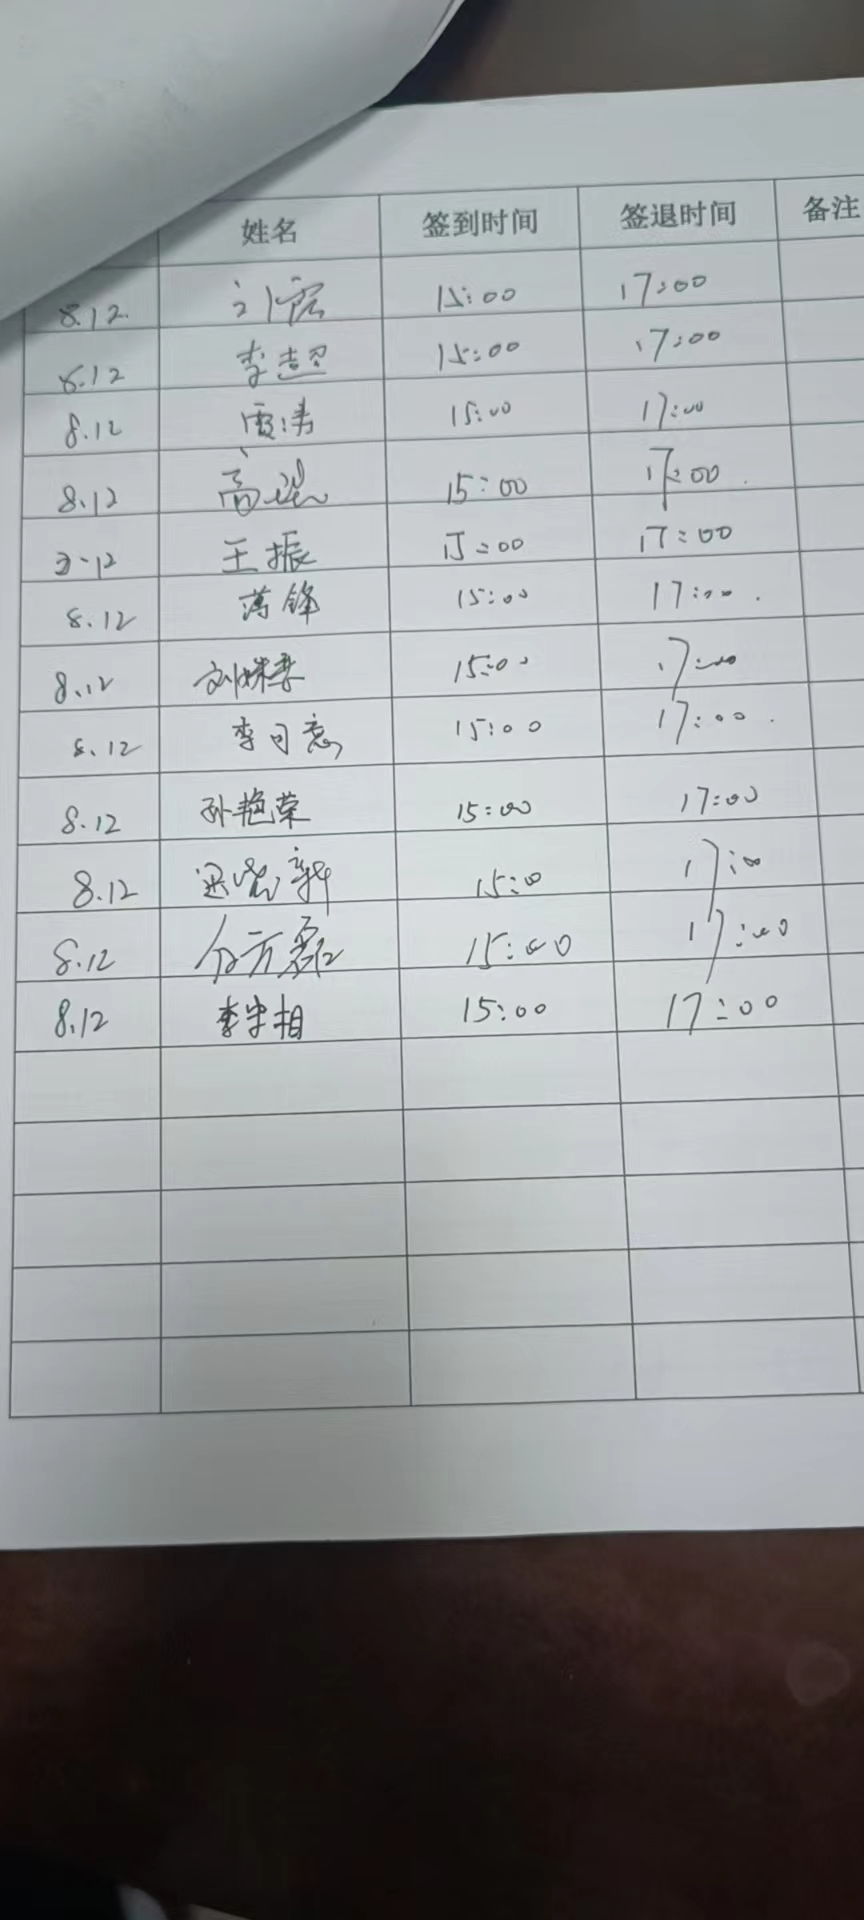 姓名 签到时间 签退时间 备注
8.12 15:00 17:00
8.12 李超 15:00 17:00
8.12 15:00 17:00
8.12 高 15:00 17:00
8-12 王振 15:00 17:00
8.12 锋 15:00 17:00
8.12 刘 15:00 17:00
8.12 李可意 15:00 17:00
8.12 孙艳荣 15:00 17:00
8.12 15:0 17:00
8.12 15:00 17:00
8.12 李宇相 15:00 17:00